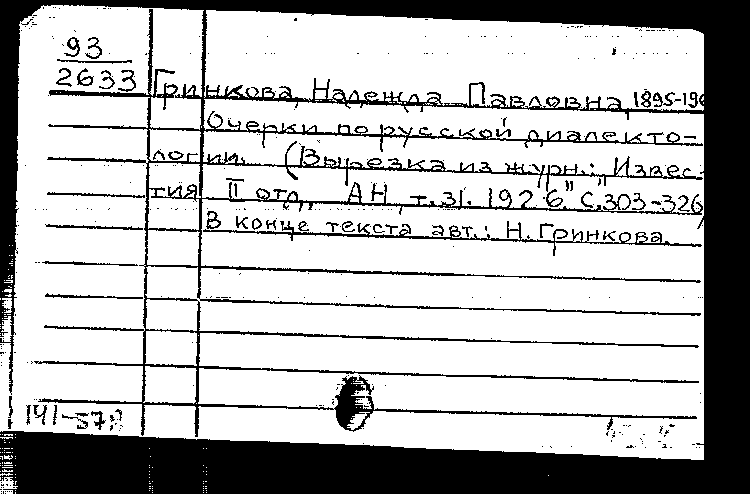 93
2633
Гринкова, Надежда Павловна, 1895-196
Очерки по русской диалекто-
логии. (Вырезка из журн.: "Извес-
тия II отд. АН, т. 31. 1926." С. 303-326
В конце текста авт.: Н. Гринкова.
141-57